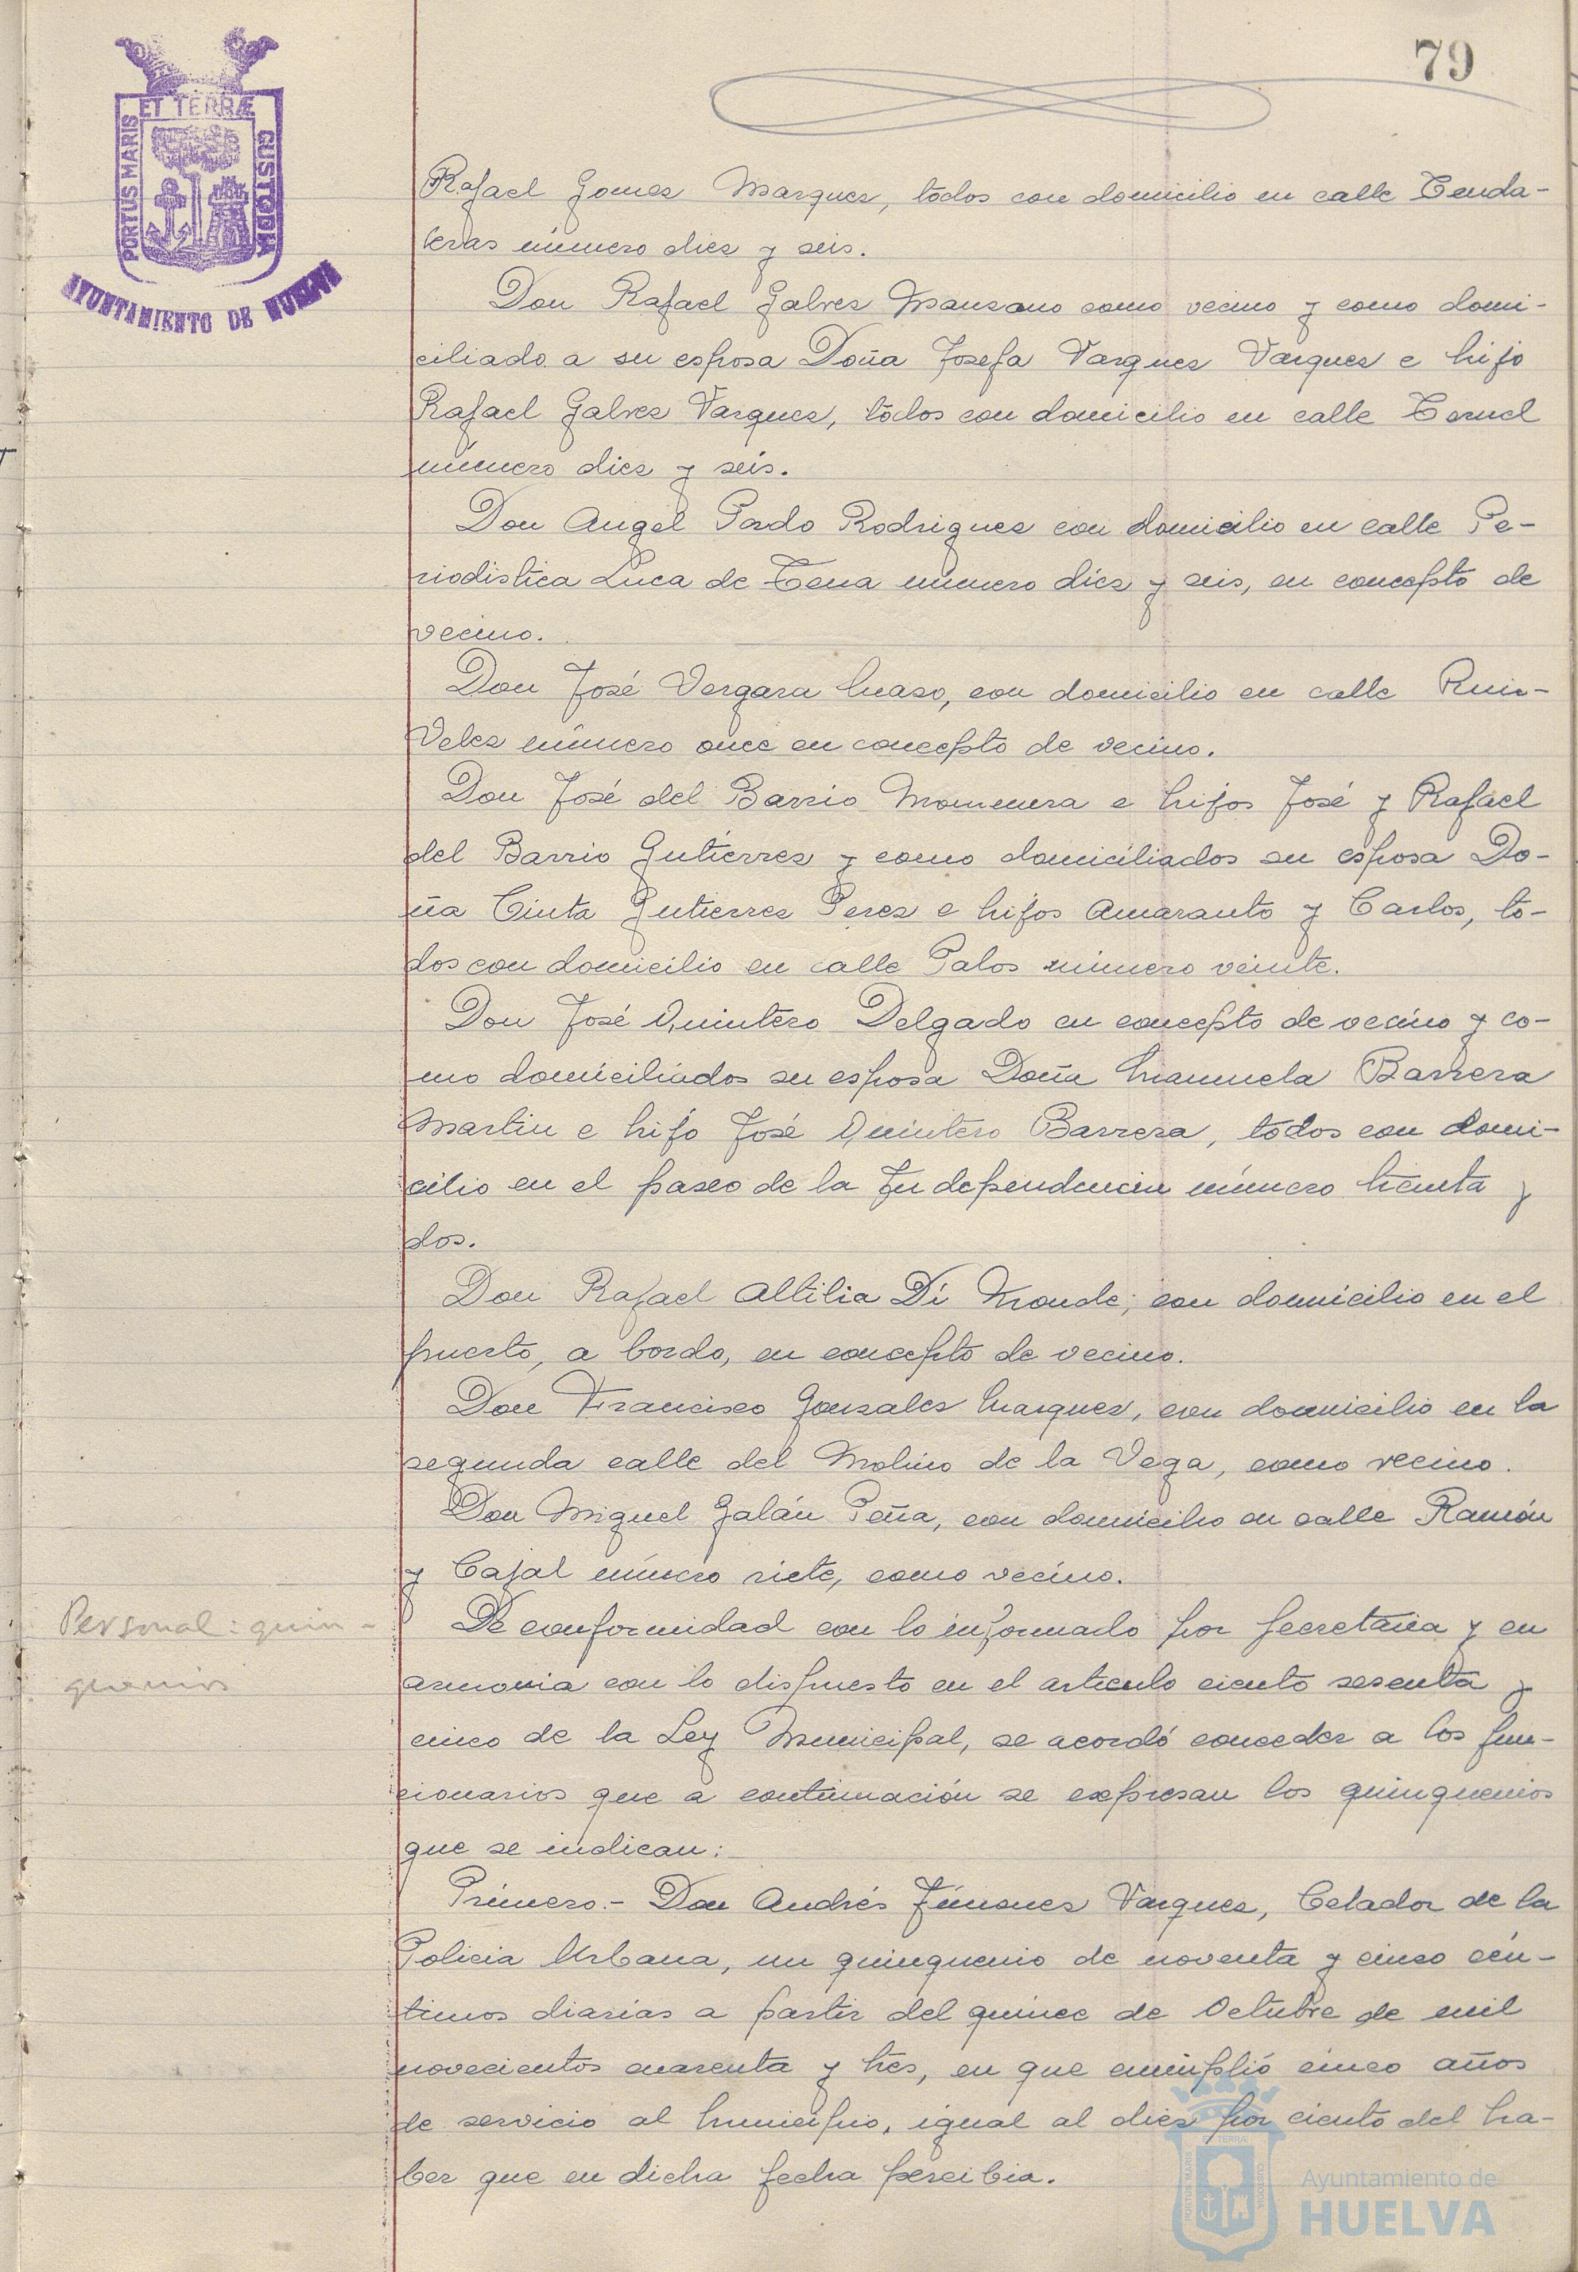 79
ET TERRÆ
PORTUS MARIS
CUSTODIA
AYUNTAMIENTO DE HUELVA
Rafael Gomez Marquez, todos con domicilio en calle Tenda-
leras número diez y seis.
Don Rafael Galvez Manzano como vecino y como domi-
ciliado a su esposa Doña Josefa Vazquez Vazquez e hijo
Rafael Galvez Vazquez, todos con domicilio en calle Teruel
número diez y seis.
Don Angel Pardo Rodriguez con domicilio en calle Pe-
riodistica Luca de Tena número diez y seis, en concepto de
vecino.
Don José Vergara Mazo, con domicilio en calle Ruiz-
Velez número once en concepto de vecino.
Don José del Barrio e hijos José y Rafael
del Barrio Gutierrez y como domiciliados su esposa Do-
ña Cinta Gutierrez Perez e hijos Amaranto y Carlos, to-
dos con domicilio en calle Palos número veinte.
Don José Quintero Delgado en concepto de vecino y co-
mo domiciliados su esposa Doña Manuela Barrera
Martin e hijo José Quintero Barrera, todos con domi-
cilio en el paseo de la Independencia número treinta y
dos.
Don Rafael Attilia Di con domicilio en el
puerto, a bordo, en concepto de vecino.
Don Francisco Gonzalez Marquez, con domicilio en la
segunda calle del Molino de la Vega, como vecino.
Don Miguel Galán Peña, con domicilio en calle Ramón
y Cajal número siete, como vecino.
Personal: quin-
quenios
De conformidad con lo informado por Secretaria y en
armonia con lo dispuesto en el articulo ciento sesenta y
cinco de la Ley Municipal, se acordó conceder a los fun-
cionarios que a continuación se expresan los quinquenios
que se indican:
Primero.- Don Andrés Jimenez Vazquez, Celador de la
Policia Urbana, un quinquenio de noventa y cinco cén-
timos diarias a partir del quince de Octubre de mil
novecientos cuarenta y tres, en que cumplió cinco años
de servicio al Municipio, igual al diez por ciento del ha-
ber que en dicha fecha percibia.
Ayuntamiento de
HUELVA